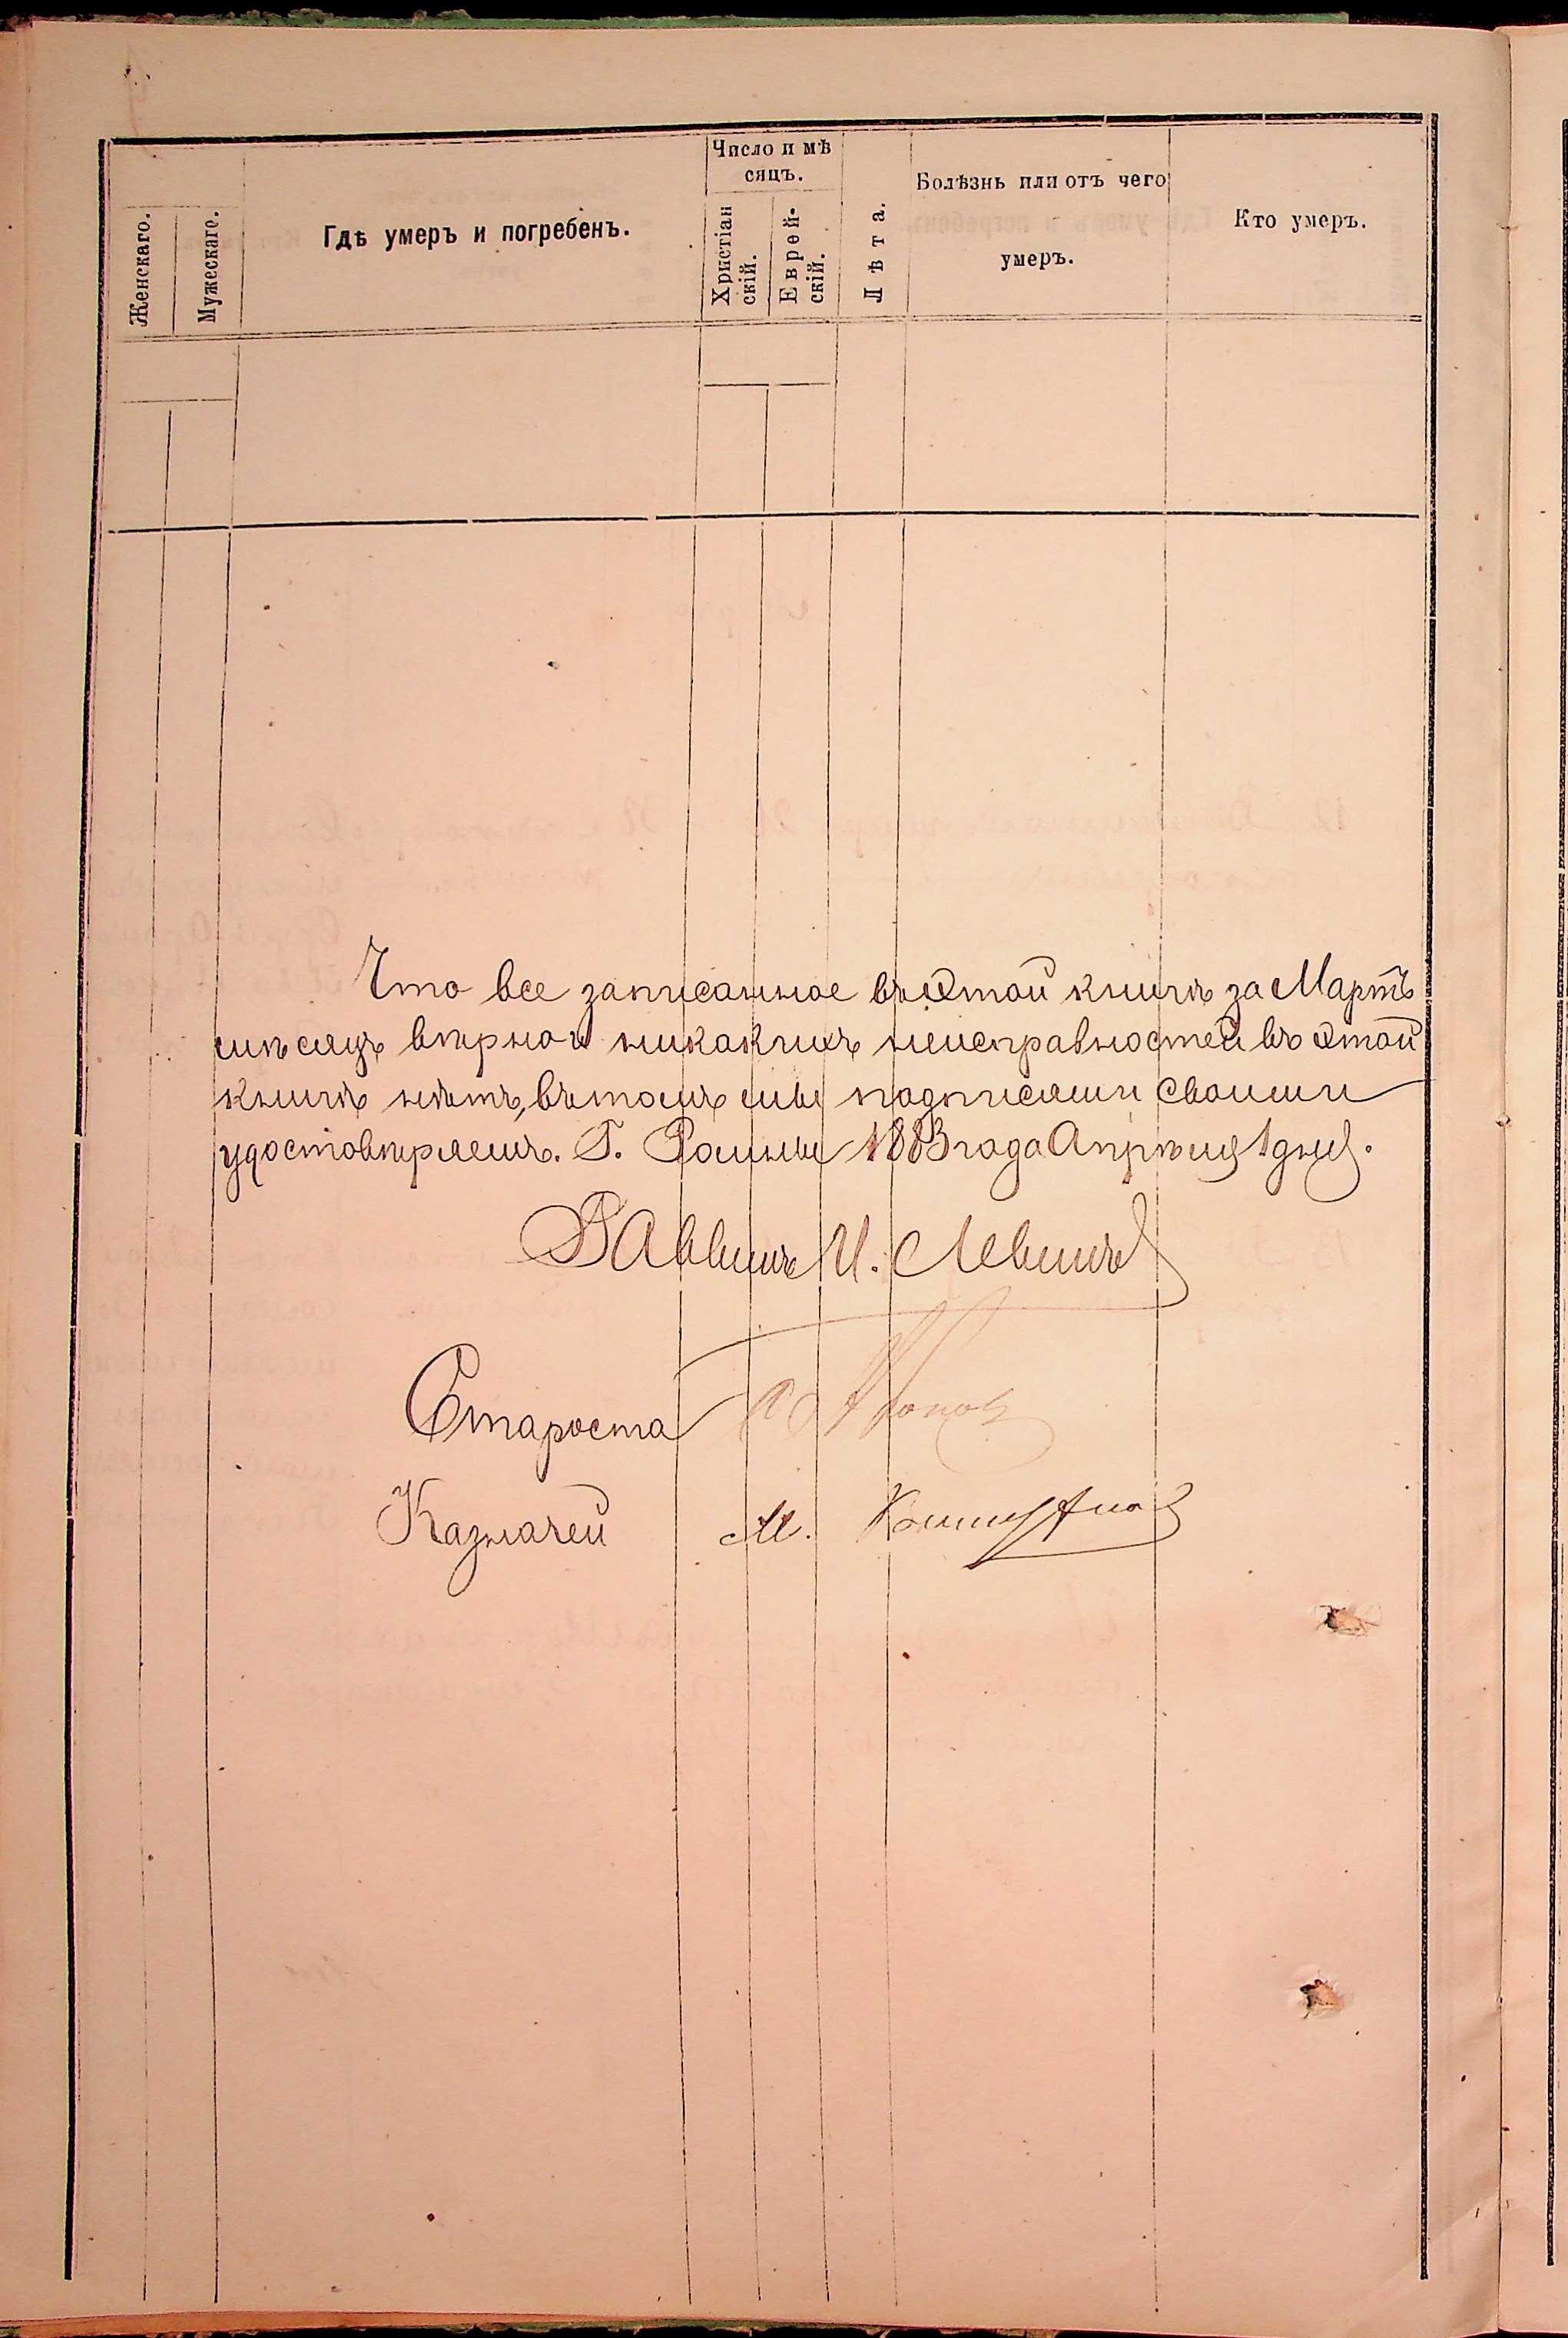 Число и мѣ
сяцъ.
Женскаго.
Мужескаго.
Гдѣ умеръ и погребенъ.
Христіан
скій.
Еврей-
скій.
Лѣта.
Болѣзнь или отъ чего
умеръ.
Кто умеръ.
Что все записанное въ этой книгѣ за Мартъ
мѣсяцъ вѣрно и никакихъ неисправностей въ этой
книгѣ нѣтъ, въ томъ мы подписями своими
удостовѣряемъ. Г. Ромны 1883 года Апрѣля 1 дня.
Раввинъ И. Левинъ
Староста
Казначей М.